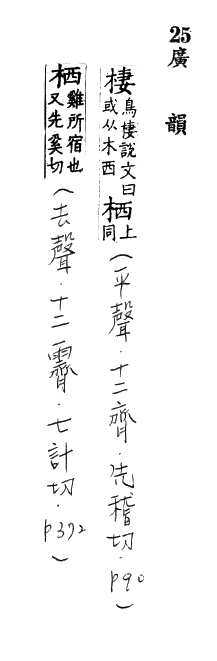 25廣韻
棲鳥棲說文曰或从木西栖上同(平聲.十二齊.先稽切.p90)
栖雞所宿也又先奚切(去聲.十二霽.七計切.p372)